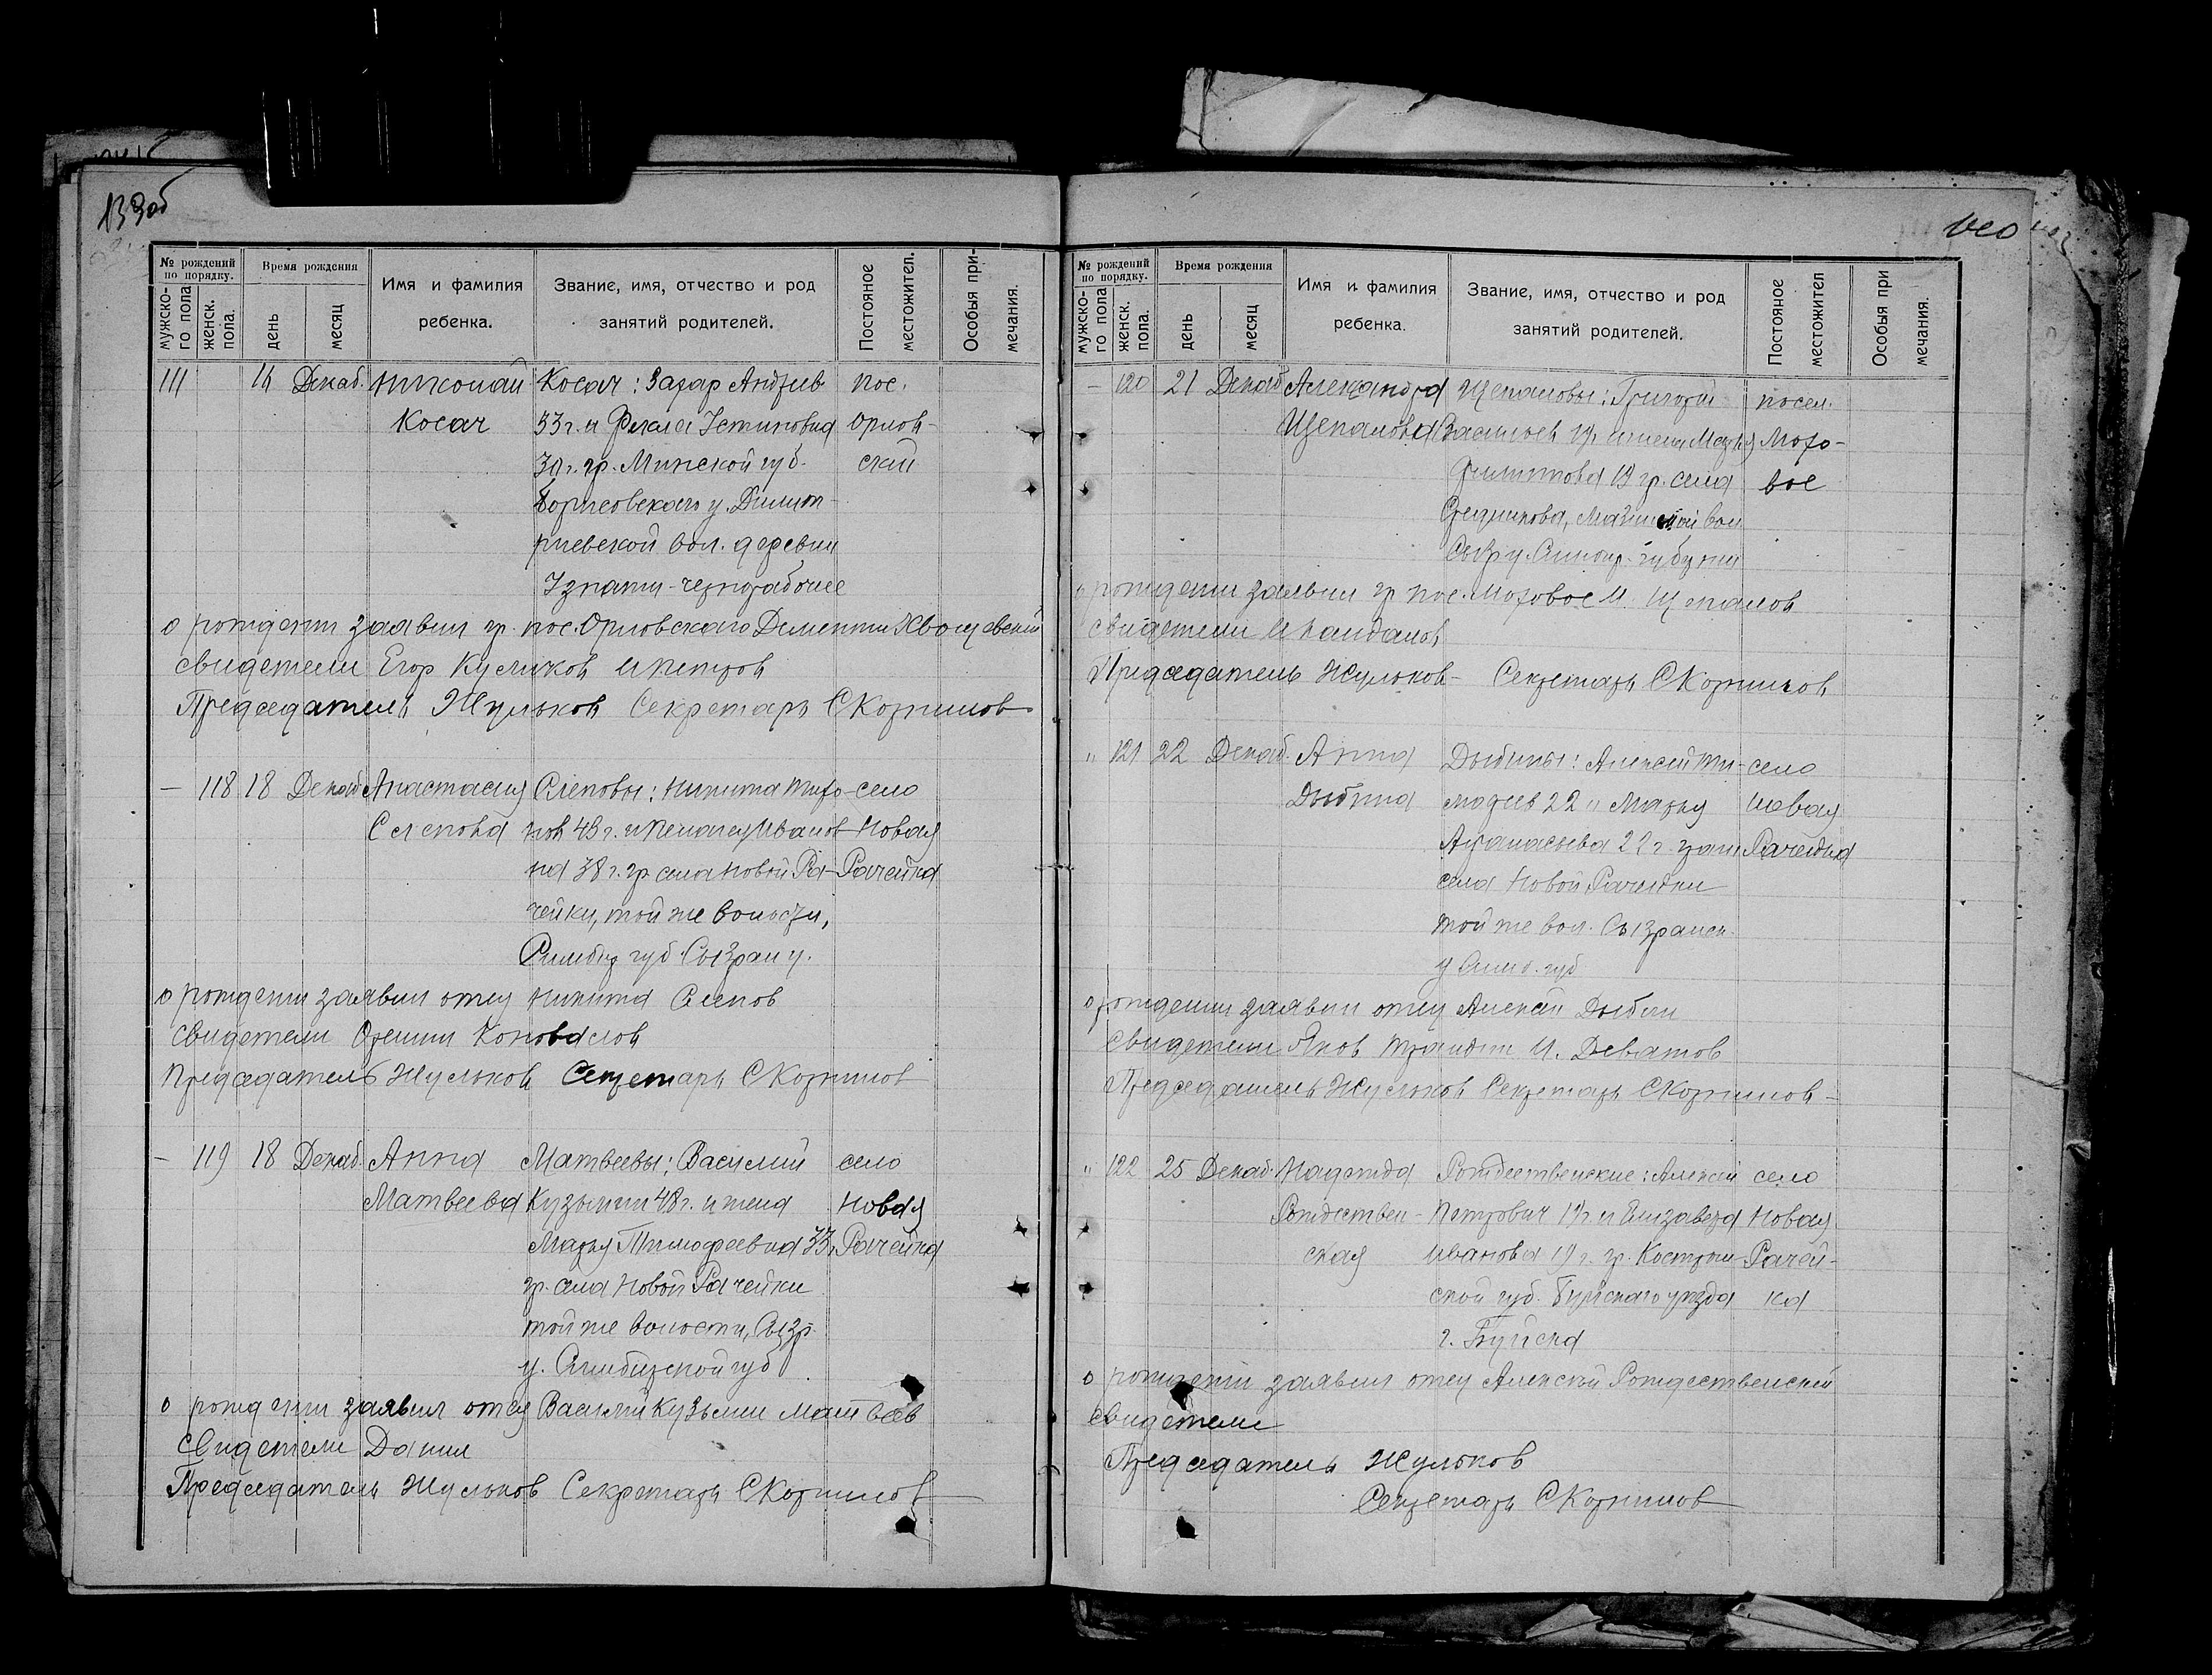 133об
№ рождений по порядку.
Время рождения
Имя и фамилия ребенка.
Звание, имя, отчество и род занятий родителей.
Постояное местожител.
Особыя примечания.
мужского пола
женск. пола.
день
месяц
111 Декаб. Николай Косач: Захар Андреев пос.
Косач 33 г. и Фекла Устиновна Орлов-
30 г. гр. Минской губ. ский
Борисовского у. Димит-
риевской вол. деревни
чернорабочие
о рождении заявил гр. пос. Орловского Дементий
свидетели Егор Куликов И Петров
Председатель Жульков Секретарь С Корнилов
— 118 18 Декаб Анастасия Слеповы: Никита Тихо- село
Слепова нов 43 г. и Пелагея Иванов- Новая
на 38 г. гр села Новой Ра- Рачейка
чейки, той же волости,
Симбир губ. Сызран у.
о рождении заявил отец Никита Слепов
свидетели Коновалов
Председатель Жульков Секретарь С Корнилов
— 119 18 Декаб. Анна Матвеевы: Василий село
Матвеева Кузьмин 48 г. и жена Новая
Марья Тимофеевна 33 г. Рачейка
гр. села Новой Рачейки
той же волости, Сызр.
у. Симбирской губ
о рождении заявил отец Василий Кузьмин Матвеев
свидетели Данил
Председатель Жульков Секретарь С Корнилов
№ рождений по порядку.
Время рождения
Имя и фамилия ребенка.
Звание, имя, отчество и род занятий родителей.
Постояное местожител
Особыя при мечания.
мужско-го пола
женск. пола.
день
месяц
— 120 21 Декаб Александра Щепаловы: Григорий посел.
Щепалова Васильев 19 г. и жена Марья Мохо-
Филиппова 19 гр. села вое
вол
Сызр у. Симбир. губернии
о рождении заявил гр пос. Моховое И. Щепалов
свидетели И Кайданов
Председатель Жульков — Секретарь С Корнилов
" 121 22 Декаб. Анна Дыбины: Алексей Ти- село
Дыбина мофеев 22 " Марья Новая
Афанасьева 22 г. граж Рачейка
села Новой Рачейки
той же вол. Сызранск.
у Симб. губ
о рождении заявил отец Алексей Дыбин
свидетели Яков И. Девятов
Председатель Жульков Секретарь С Корнилов —
" 122 25 Декаб. Надежда Рождественские: Алексей село
Рождествен- Петрович 19 г. и Елизавета Новая
ская Иванова 19 г. гр. Костром- Рачей-
ской губ. Буйского уезда ка
г. Буйска
о рождении заявил отец Алексей Рождественский
свидетели
Председатель Жульков
Секретарь С Корнилов